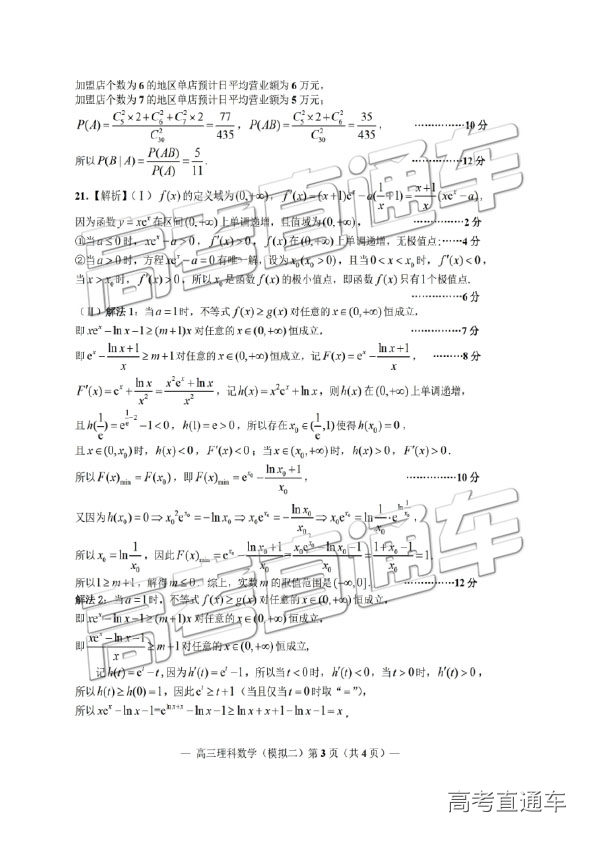 加盟店个数为 6 的地区单店预计日平均营业额为 6 万元,
加盟店个数为 7 的地区单店预计日平均营业额为 5 万元;
P(A) = (C₅²×2+C₆²+C₇²×2)/C₃₀² = 77/435, P(AB) = (C₅²×2+C₆²)/C₃₀² = 35/435, ……………10 分
所以 P(B | A) = P(AB)/P(A) = 5/11. ……………12 分
21.【解析】(Ⅰ) f(x) 的定义域为(0,+∞), f′(x) = (x+1)eˣ − a(1/x+1) = (x+1)/x (xeˣ − a),
因为函数 y = xeˣ 在区间(0,+∞) 上单调递增, 且值域为(0,+∞), ……………2 分
①当 a ≤ 0 时, xeˣ − a > 0, f′(x) > 0, f(x) 在(0,+∞) 上单调递增, 无极值点; ……4 分
②当 a > 0 时, 方程 xeˣ − a = 0 有唯一解, 设为 x₀(x₀ > 0), 且当 0 < x < x₀ 时, f′(x) < 0,
当 x > x₀ 时, f′(x) > 0, 所以 x₀ 是函数 f(x) 的极小值点, 即函数 f(x) 只有1个极值点.
……………6 分
(Ⅱ) 解法 1: 当 a = 1 时, 不等式 f(x) ≥ g(x) 对任意的 x∈(0,+∞) 恒成立,
即 xeˣ − ln x − 1 ≥ (m+1)x 对任意的 x∈(0,+∞) 恒成立, ……………7 分
即 eˣ − (ln x+1)/x ≥ m+1 对任意的 x∈(0,+∞) 恒成立, 记 F(x) = eˣ − (ln x+1)/x, ………8 分
F′(x) = eˣ + ln x/x² = (x²eˣ + ln x)/x², 记 h(x) = x²eˣ + ln x, 则 h(x) 在 (0,+∞) 上单调递增,
且 h(1/e) = e^(1/e−2) − 1 < 0, h(1) = e > 0, 所以存在 x₀ ∈ (1/e,1) 使得 h(x₀) = 0,
且 x∈(0,x₀) 时, h(x) < 0, F′(x) < 0; 当 x∈(x₀,+∞) 时, h(x) > 0, F′(x) > 0.
所以 F(x)min = F(x₀), 即 F(x)min = e^x₀ − (ln x₀+1)/x₀, ……………10 分
又因为 h(x₀) = 0 ⇒ x₀²e^x₀ = −ln x₀ ⇒ x₀e^x₀ = −ln x₀/x₀ ⇒ x₀e^x₀ = ln 1/x₀ · e^(ln 1/x₀),
所以 x₀ = ln 1/x₀, 因此 F(x)min = e^x₀ − (ln x₀+1)/x₀ = (x₀e^x₀ − ln x₀ − 1)/x₀ = (1+x₀−1)/x₀ = 1.
所以 1 ≥ m+1, 解得 m ≤ 0. 综上, 实数 m 的取值范围是 (−∞,0]. ……………12 分
解法 2: 当 a = 1 时, 不等式 f(x) ≥ g(x) 对任意的 x∈(0,+∞) 恒成立,
即 xeˣ − ln x − 1 ≥ (m+1)x 对任意的 x∈(0,+∞) 恒成立,
即 (xeˣ − ln x − 1)/x ≥ m+1 对任意的 x∈(0,+∞) 恒成立,
记 h(t) = eᵗ − t, 因为 h′(t) = eᵗ − 1, 所以当 t < 0 时, h′(t) < 0, 当 t > 0 时, h′(t) > 0,
所以 h(t) ≥ h(0) = 1, 因此 eᵗ ≥ t+1 (当且仅当 t = 0 时取“=”),
所以 xeˣ − ln x − 1 = e^(ln x+x) − ln x − 1 ≥ ln x + x + 1 − ln x − 1 = x,
— 高三理科数学（模拟二）第 3 页（共 4 页）—
高考直通车
高考直通车
高考直通车